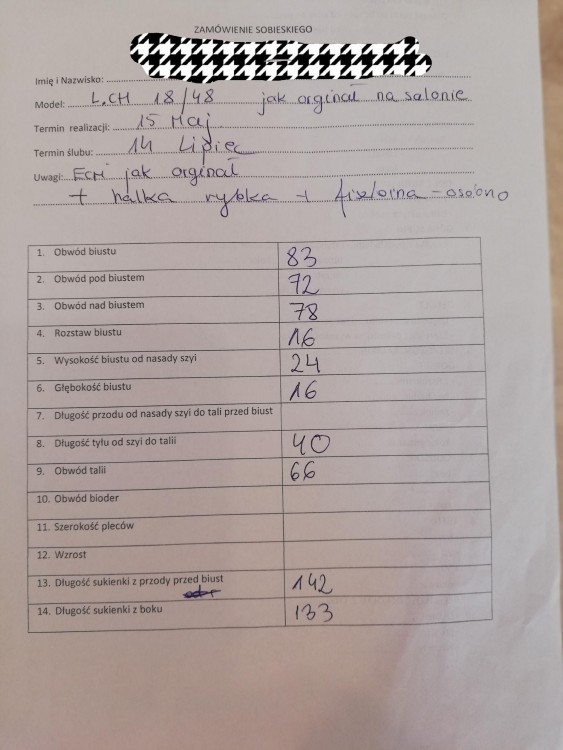 ZAMÓWIENIE SOBIESKIEGO
Imię i Nazwisko:
Model: L.CH 18/48 jak orginał na salonie
Termin realizacji: 15 Maj
Termin ślubu: 14 Lipiec
Uwagi: Ecri jak orginał
+ halka rybka + fiszbina - osobno
1. Obwód biustu 83
2. Obwód pod biustem 72
3. Obwód nad biustem 78
4. Rozstaw biustu 16
5. Wysokość biustu od nasady szyi 24
6. Głębokość biustu 16
7. Długość przodu od nasady szyi do tali przed biust
8. Długość tyłu od szyi do talii 40
9. Obwód talii 66
10. Obwód bioder
11. Szerokość pleców
12. Wzrost
13. Długość sukienki z przody przed biust 142
14. Długość sukienki z boku 133